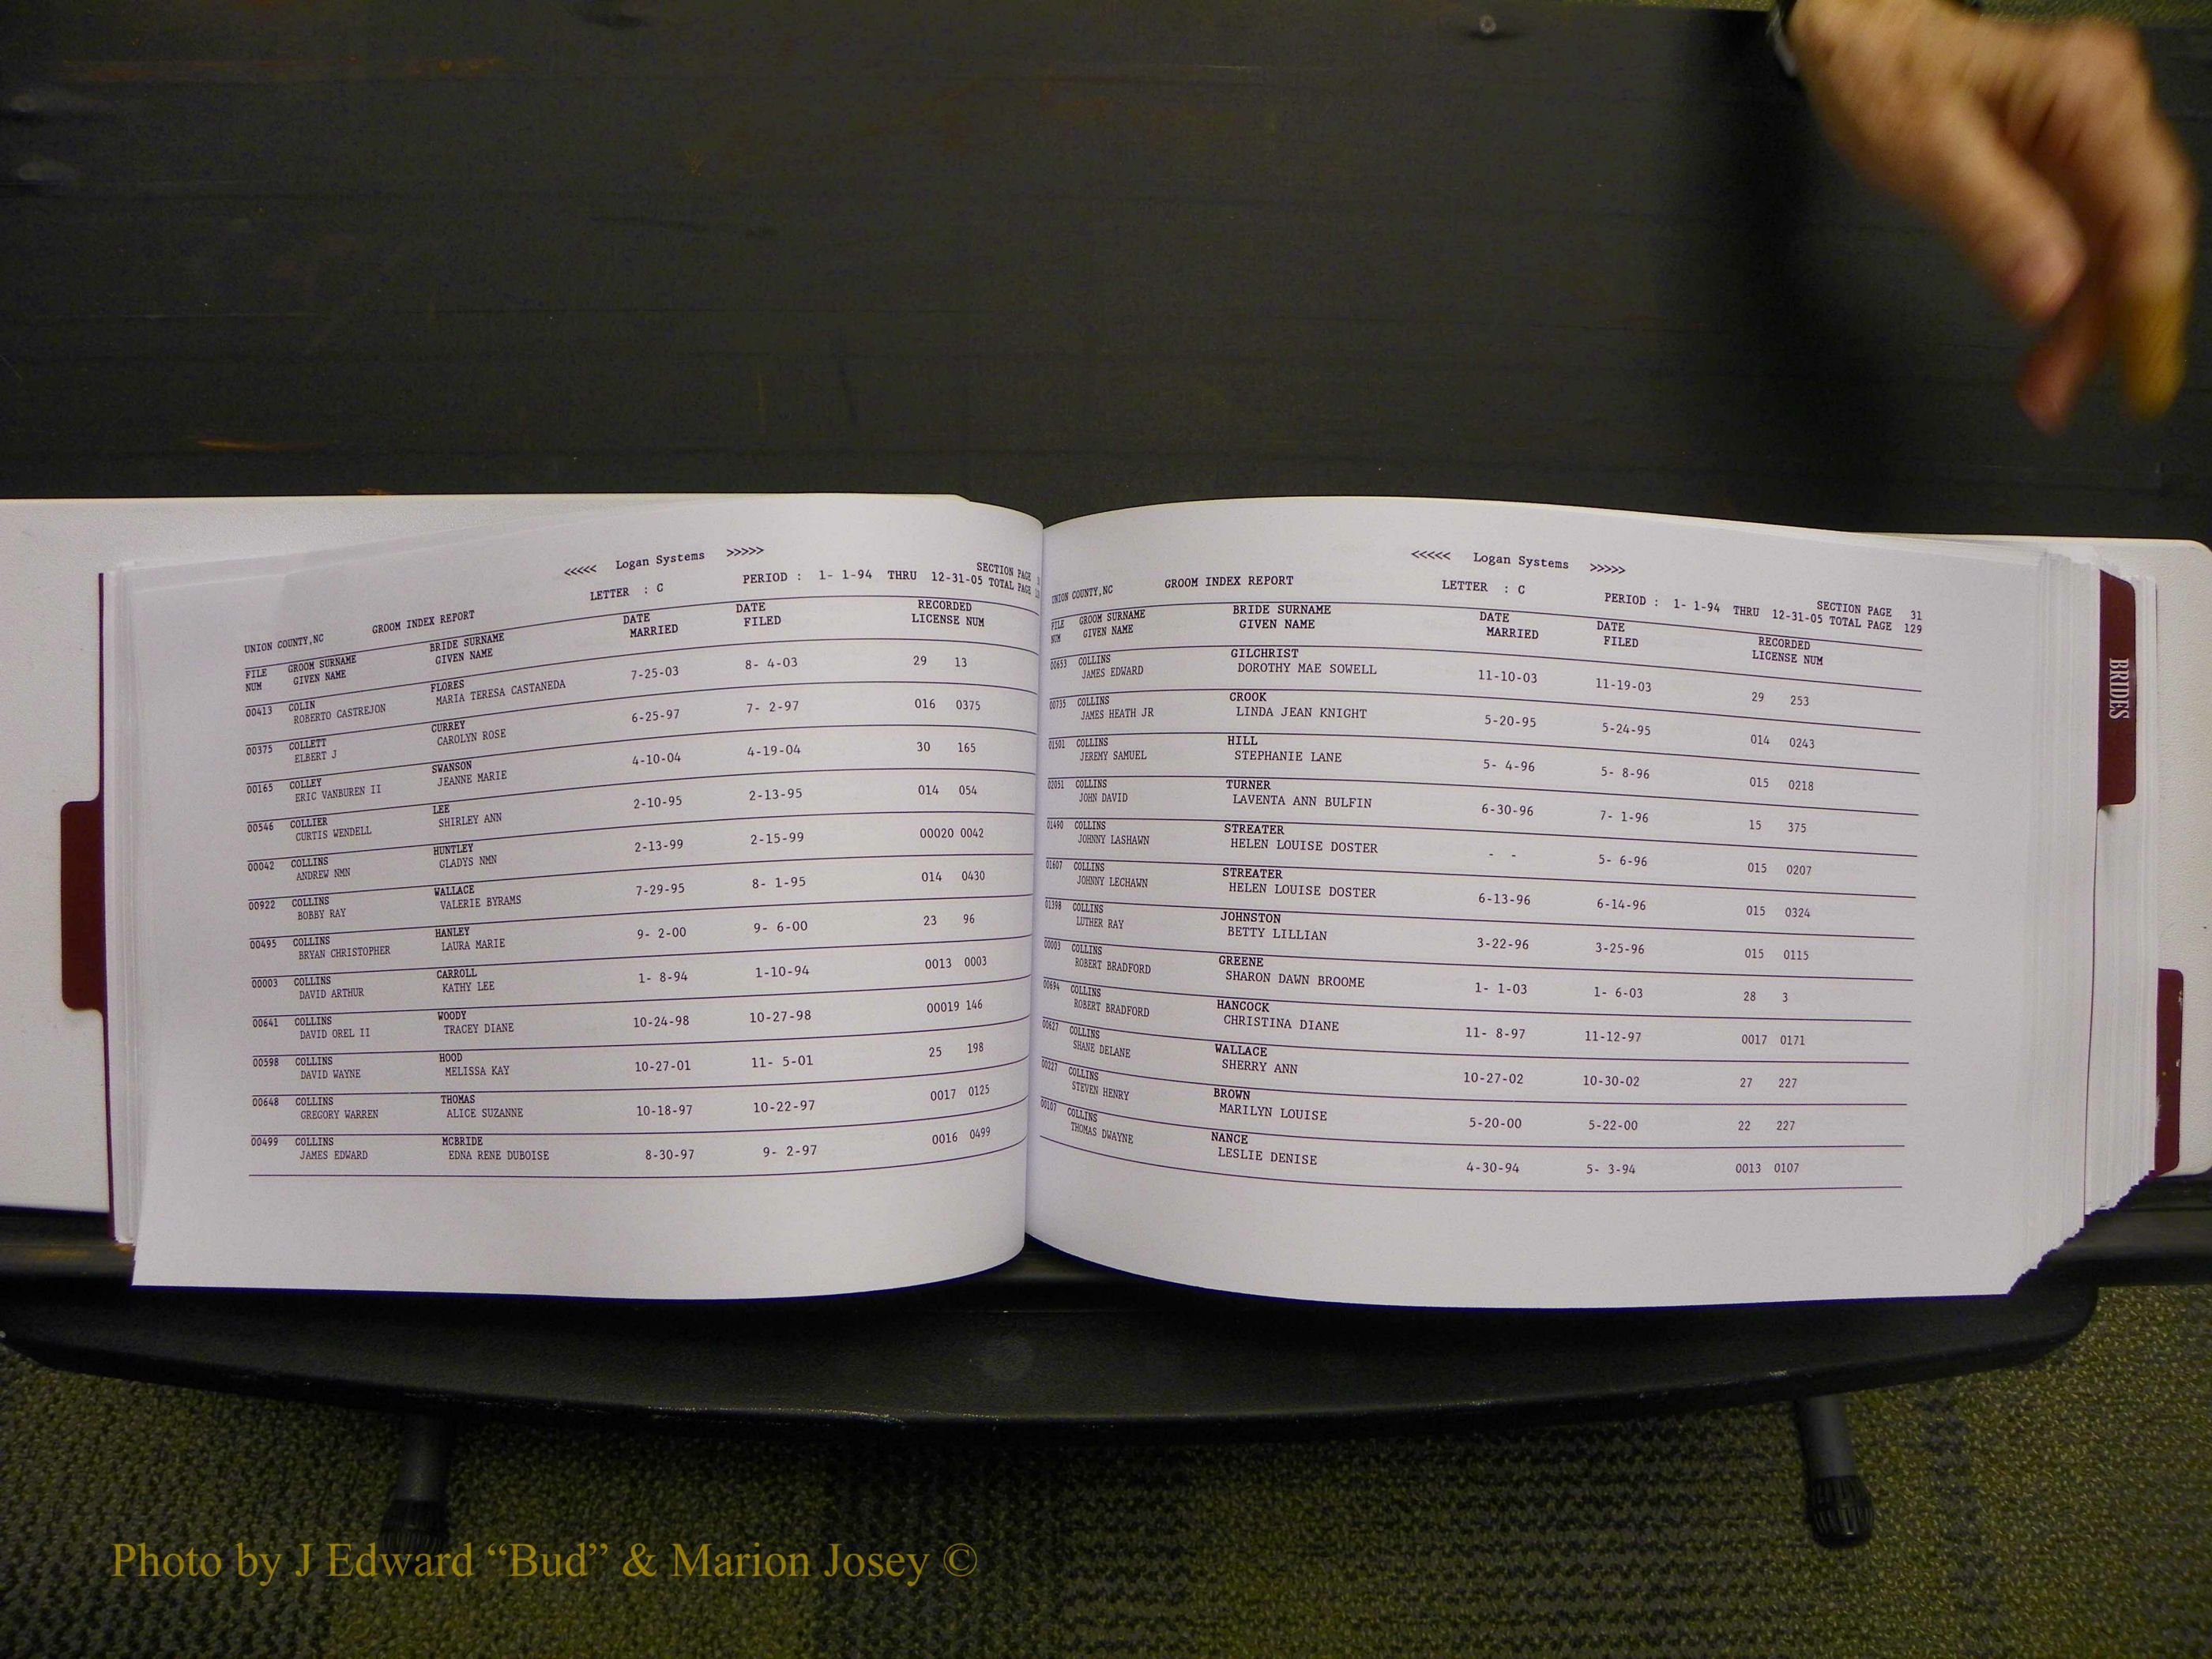 <<<<< Logan Systems >>>>>
SECTION PAGE
UNION COUNTY,NC GROOM INDEX REPORT LETTER : C PERIOD : 1- 1-94 THRU 12-31-05 TOTAL PAGE
FILE GROOM SURNAME BRIDE SURNAME DATE DATE RECORDED
NUM GIVEN NAME GIVEN NAME MARRIED FILED LICENSE NUM
00413 COLIN FLORES 7-25-03 8- 4-03 29 13
ROBERTO CASTREJON MARIA TERESA CASTANEDA
00375 COLLETT CURREY 6-25-97 7- 2-97 016 0375
ELBERT J CAROLYN ROSE
00165 COLLEY SWANSON 4-10-04 4-19-04 30 165
ERIC VANBUREN II JEANNE MARIE
00546 COLLIER LEE 2-10-95 2-13-95 014 054
CURTIS WENDELL SHIRLEY ANN
00042 COLLINS HUNTLEY 2-13-99 2-15-99 00020 0042
ANDREW NMN GLADYS NMN
00922 COLLINS WALLACE 7-29-95 8- 1-95 014 0430
BOBBY RAY VALERIE BYRAMS
00495 COLLINS HANLEY 9- 2-00 9- 6-00 23 96
BRYAN CHRISTOPHER LAURA MARIE
00003 COLLINS CARROLL 1- 8-94 1-10-94 0013 0003
DAVID ARTHUR KATHY LEE
00641 COLLINS WOODY 10-24-98 10-27-98 00019 146
DAVID OREL II TRACEY DIANE
00598 COLLINS HOOD 10-27-01 11- 5-01 25 198
DAVID WAYNE MELISSA KAY
00648 COLLINS THOMAS 10-18-97 10-22-97 0017 0125
GREGORY WARREN ALICE SUZANNE
00499 COLLINS MCBRIDE 8-30-97 9- 2-97 0016 0499
JAMES EDWARD EDNA RENE DUBOISE
<<<<< Logan Systems >>>>>
SECTION PAGE 31
UNION COUNTY,NC GROOM INDEX REPORT LETTER : C PERIOD : 1- 1-94 THRU 12-31-05 TOTAL PAGE 129
FILE GROOM SURNAME BRIDE SURNAME DATE DATE RECORDED
NUM GIVEN NAME GIVEN NAME MARRIED FILED LICENSE NUM
00653 COLLINS GILCHRIST 11-10-03 11-19-03 29 253
JAMES EDWARD DOROTHY MAE SOWELL
00735 COLLINS CROOK 5-20-95 5-24-95 014 0243
JAMES HEATH JR LINDA JEAN KNIGHT
01501 COLLINS HILL 5- 4-96 5- 8-96 015 0218
JEREMY SAMUEL STEPHANIE LANE
02051 COLLINS TURNER 6-30-96 7- 1-96 15 375
JOHN DAVID LAVENTA ANN BULFIN
01490 COLLINS STREATER - - 5- 6-96 015 0207
JOHNNY LASHAWN HELEN LOUISE DOSTER
01607 COLLINS STREATER 6-13-96 6-14-96 015 0324
JOHNNY LECHAWN HELEN LOUISE DOSTER
01398 COLLINS JOHNSTON 3-22-96 3-25-96 015 0115
LUTHER RAY BETTY LILLIAN
00003 COLLINS GREENE 1- 1-03 1- 6-03 28 3
ROBERT BRADFORD SHARON DAWN BROOME
00694 COLLINS HANCOCK 11- 8-97 11-12-97 0017 0171
ROBERT BRADFORD CHRISTINA DIANE
00627 COLLINS WALLACE 10-27-02 10-30-02 27 227
SHANE DELANE SHERRY ANN
00227 COLLINS BROWN 5-20-00 5-22-00 22 227
STEVEN HENRY MARILYN LOUISE
00107 COLLINS NANCE 4-30-94 5- 3-94 0013 0107
THOMAS DWAYNE LESLIE DENISE
BRIDES
Photo by J Edward “Bud” & Marion Josey ©